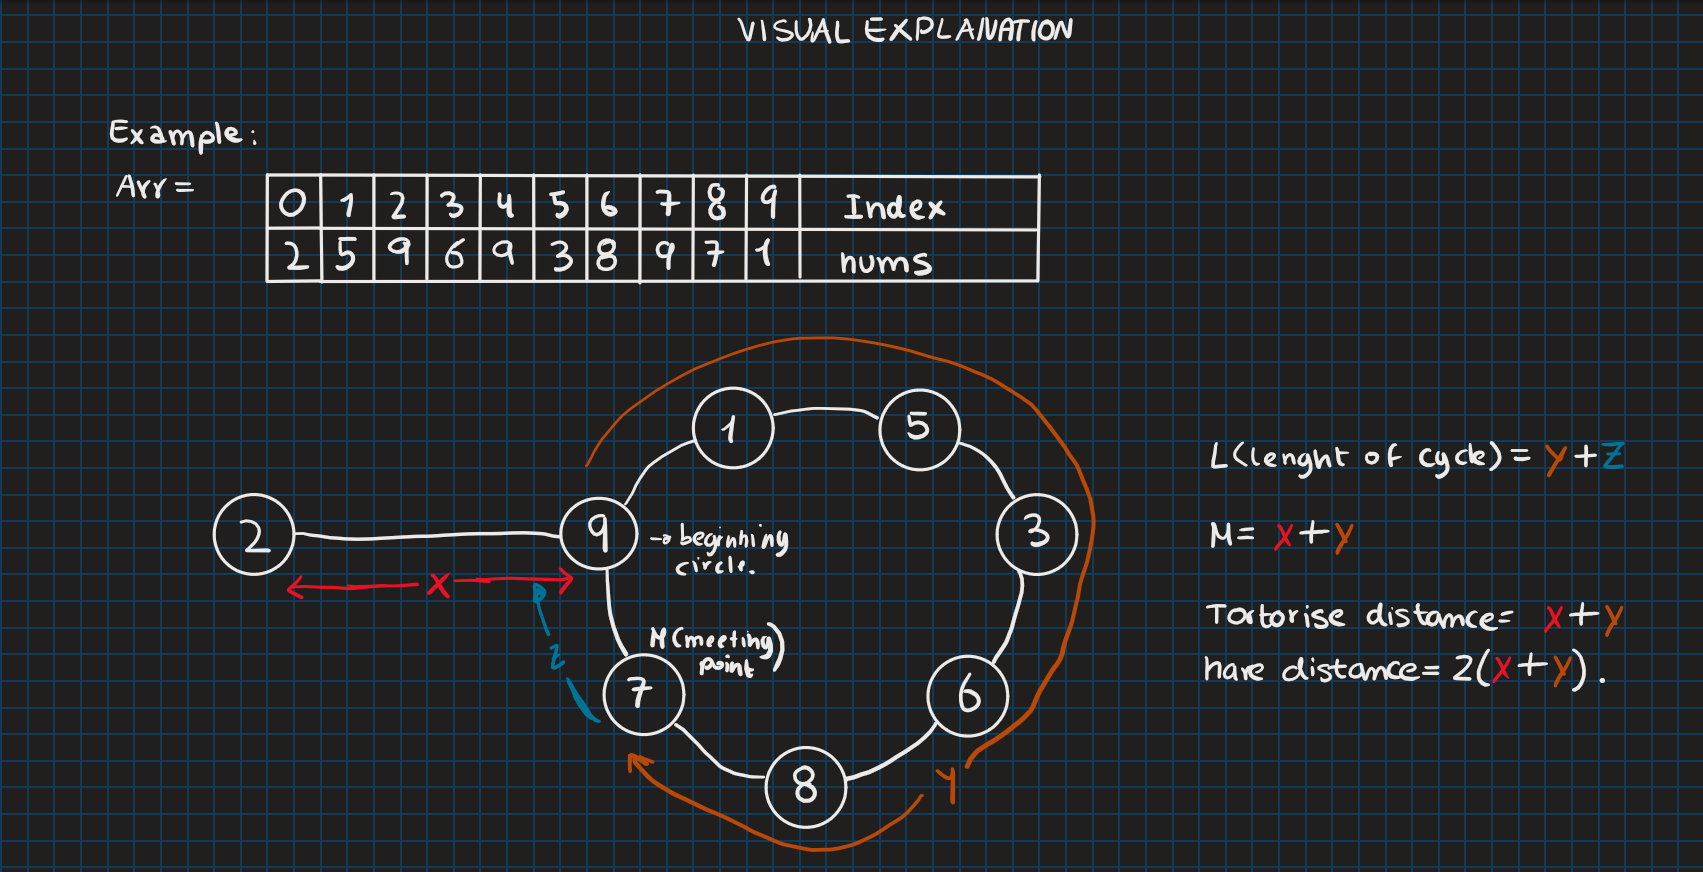 VISUAL EXPLANATION
Example:
Arr =
0 1 2 3 4 5 6 7 8 9 Index
2 5 9 6 9 3 8 9 7 1 nums
1 5
2 9 3
→ beginning
circle.
X
Z
M (meeting)
point
7 6
8
Y
L (lenght of cycle) = Y + Z
M = X + Y
Tortorise distance = X + Y
hare distance = 2(X + Y).